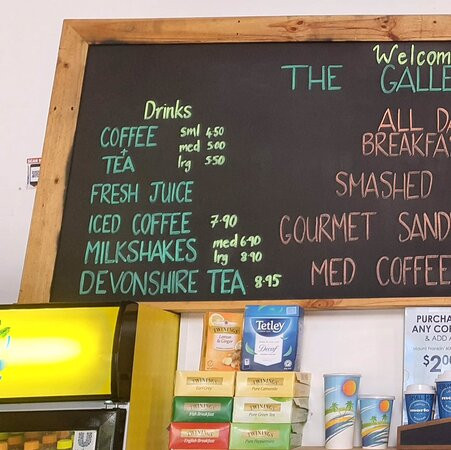 Welcom
THE GALLE
Drinks
COFFEE sml 4.50
& med 5.00
TEA lrg 5.50
FRESH JUICE
ICED COFFEE 7.90
MILKSHAKES med 6.90
lrg 8.90
DEVONSHIRE TEA 8.95
ALL DA
BREAKFAS
SMASHED
GOURMET SAND
MED COFFEE
PURCHA
ANY COF
& ADD A
$2.00
TWININGS
Lemon & Ginger
Tetley
Decaf
TWININGS
Earl Grey
TWININGS
Pure Camomile
TWININGS
TWININGS
Pure Green Tea
TWININGS
English Breakfast
TWININGS
Pure Peppermint